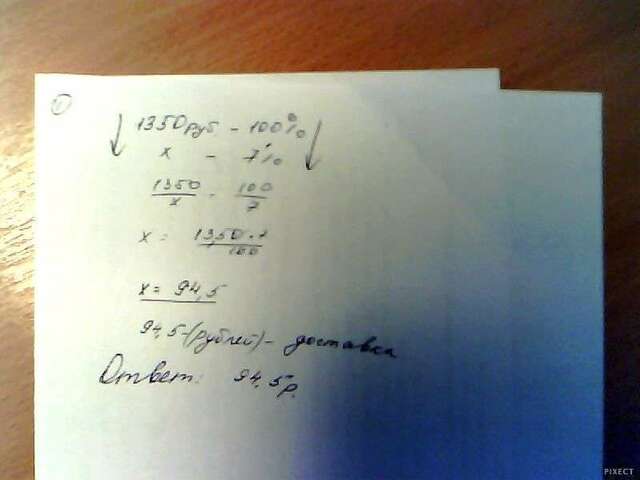 1
1350 руб. - 100%
x - 7%
1350/x = 100/7
x = 1350·7/100
x = 94,5
94,5 (рублей) - доставка
Ответ: 94,5р.
PIXECT